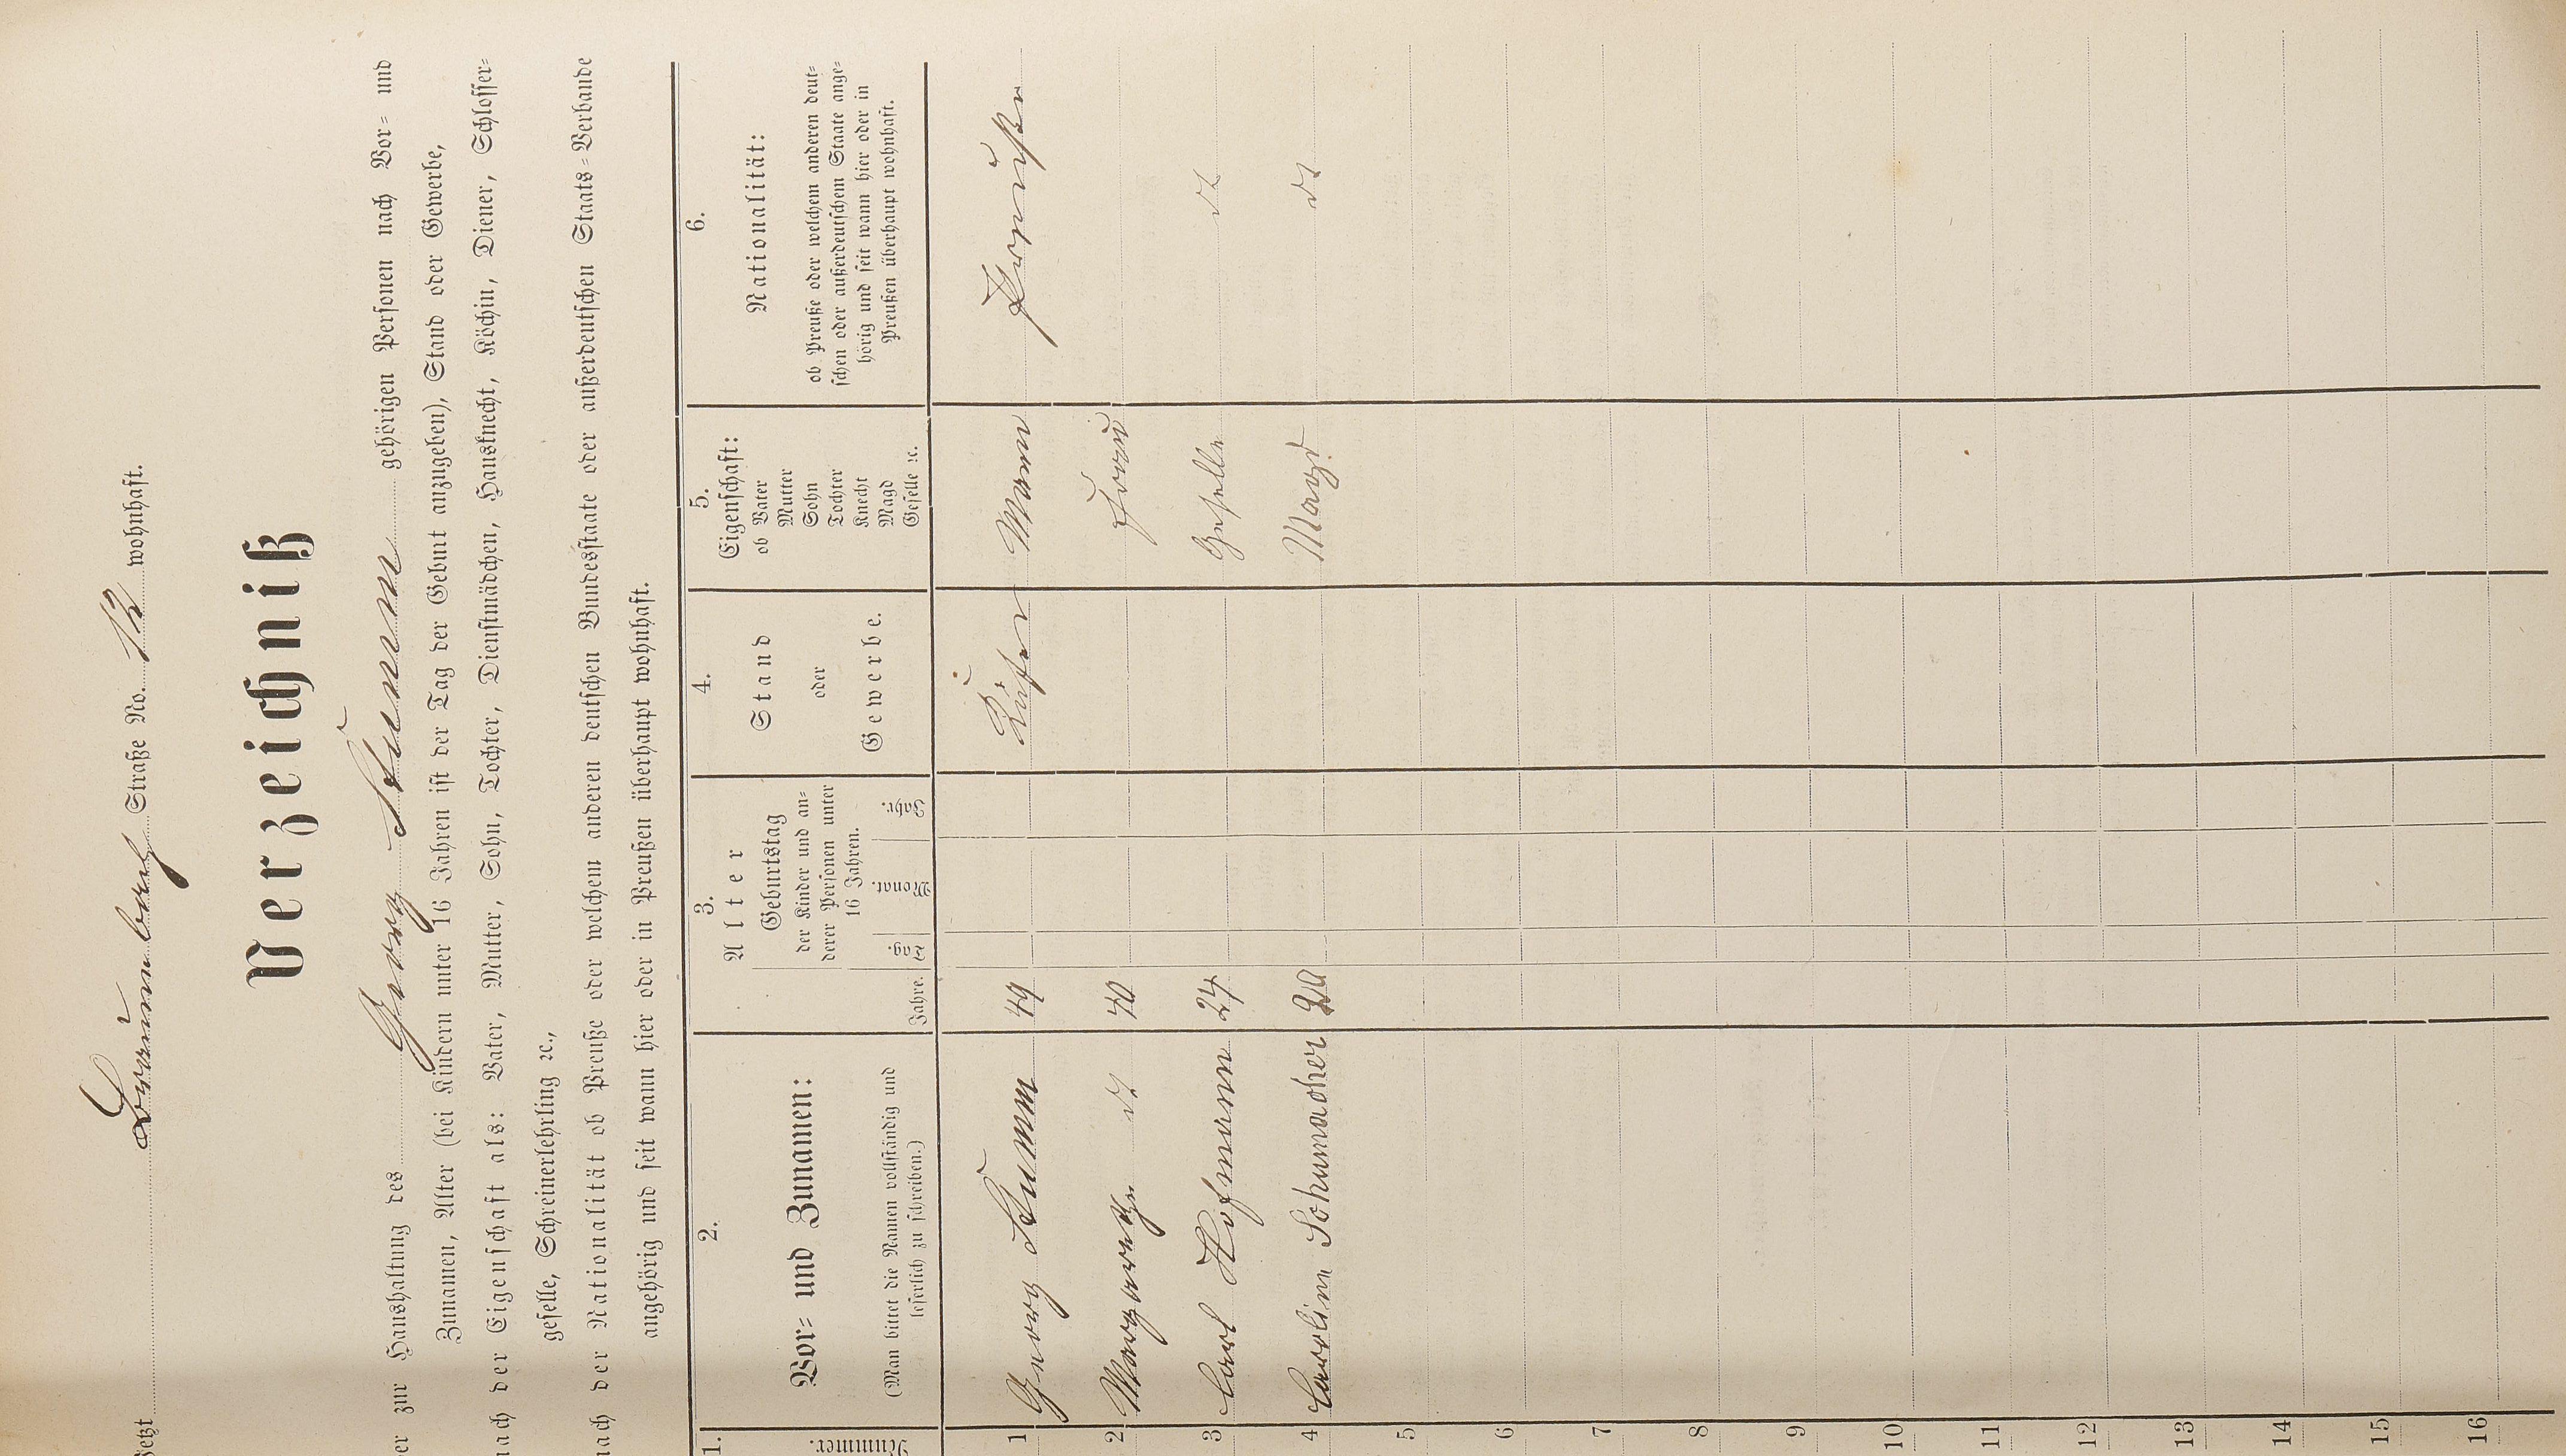 Jetzt Braunbach Straße No. 12 wohnhaft.
Verzeichniß
er zur Haushaltung des Georg Stumm gehörigen Personen nach Vor= und
Zunamen, Alter (bei Kindern unter 16 Jahren ist der Tag der Geburt anzugeben), Stand oder Gewerbe,
nach der Eigenschaft als: Vater, Mutter, Sohn, Tochter, Dienstmädchen, Hausknecht, Köchin, Diener, Schlosser=
geselle, Schreinerlehrling ꝛc.,
nach der Nationalität ob Preuße oder welchem anderen deutschen Bundesstaate oder außerdeutschen Staats=Verbande
angehörig und seit wann hier oder in Preußen überhaupt wohnhaft.
1. 2. 3. 4. 5. 6.
Nummer.
Vor= und Zunamen:
(Man bittet die Namen vollständig und
leserlich zu schreiben.)
Alter
Jahre.
Geburtstag
der Kinder und an=
derer Personen unter
16 Jahren.
Tag. Monat. Jahr.
Stand
oder
Gewerbe.
Eigenschaft:
ob Vater
Mutter
Sohn
Tochter
Knecht
Magd
Geselle ꝛc.
Nationalität:
ob Preuße oder welchem anderen deut=
schen oder außerdeutschem Staate ange=
hörig und seit wann hier oder in
Preußen überhaupt wohnhaft.
1 Georg Stumm 49 Küfer Mann Preuße
2 Margarethe dt 40 Frau
3 Carl Hofmann 24 Geselle dt
4 Carolina Schumacher 20 Magd. dt
5
6
7
8
9
10
11
12
13
14
15
16